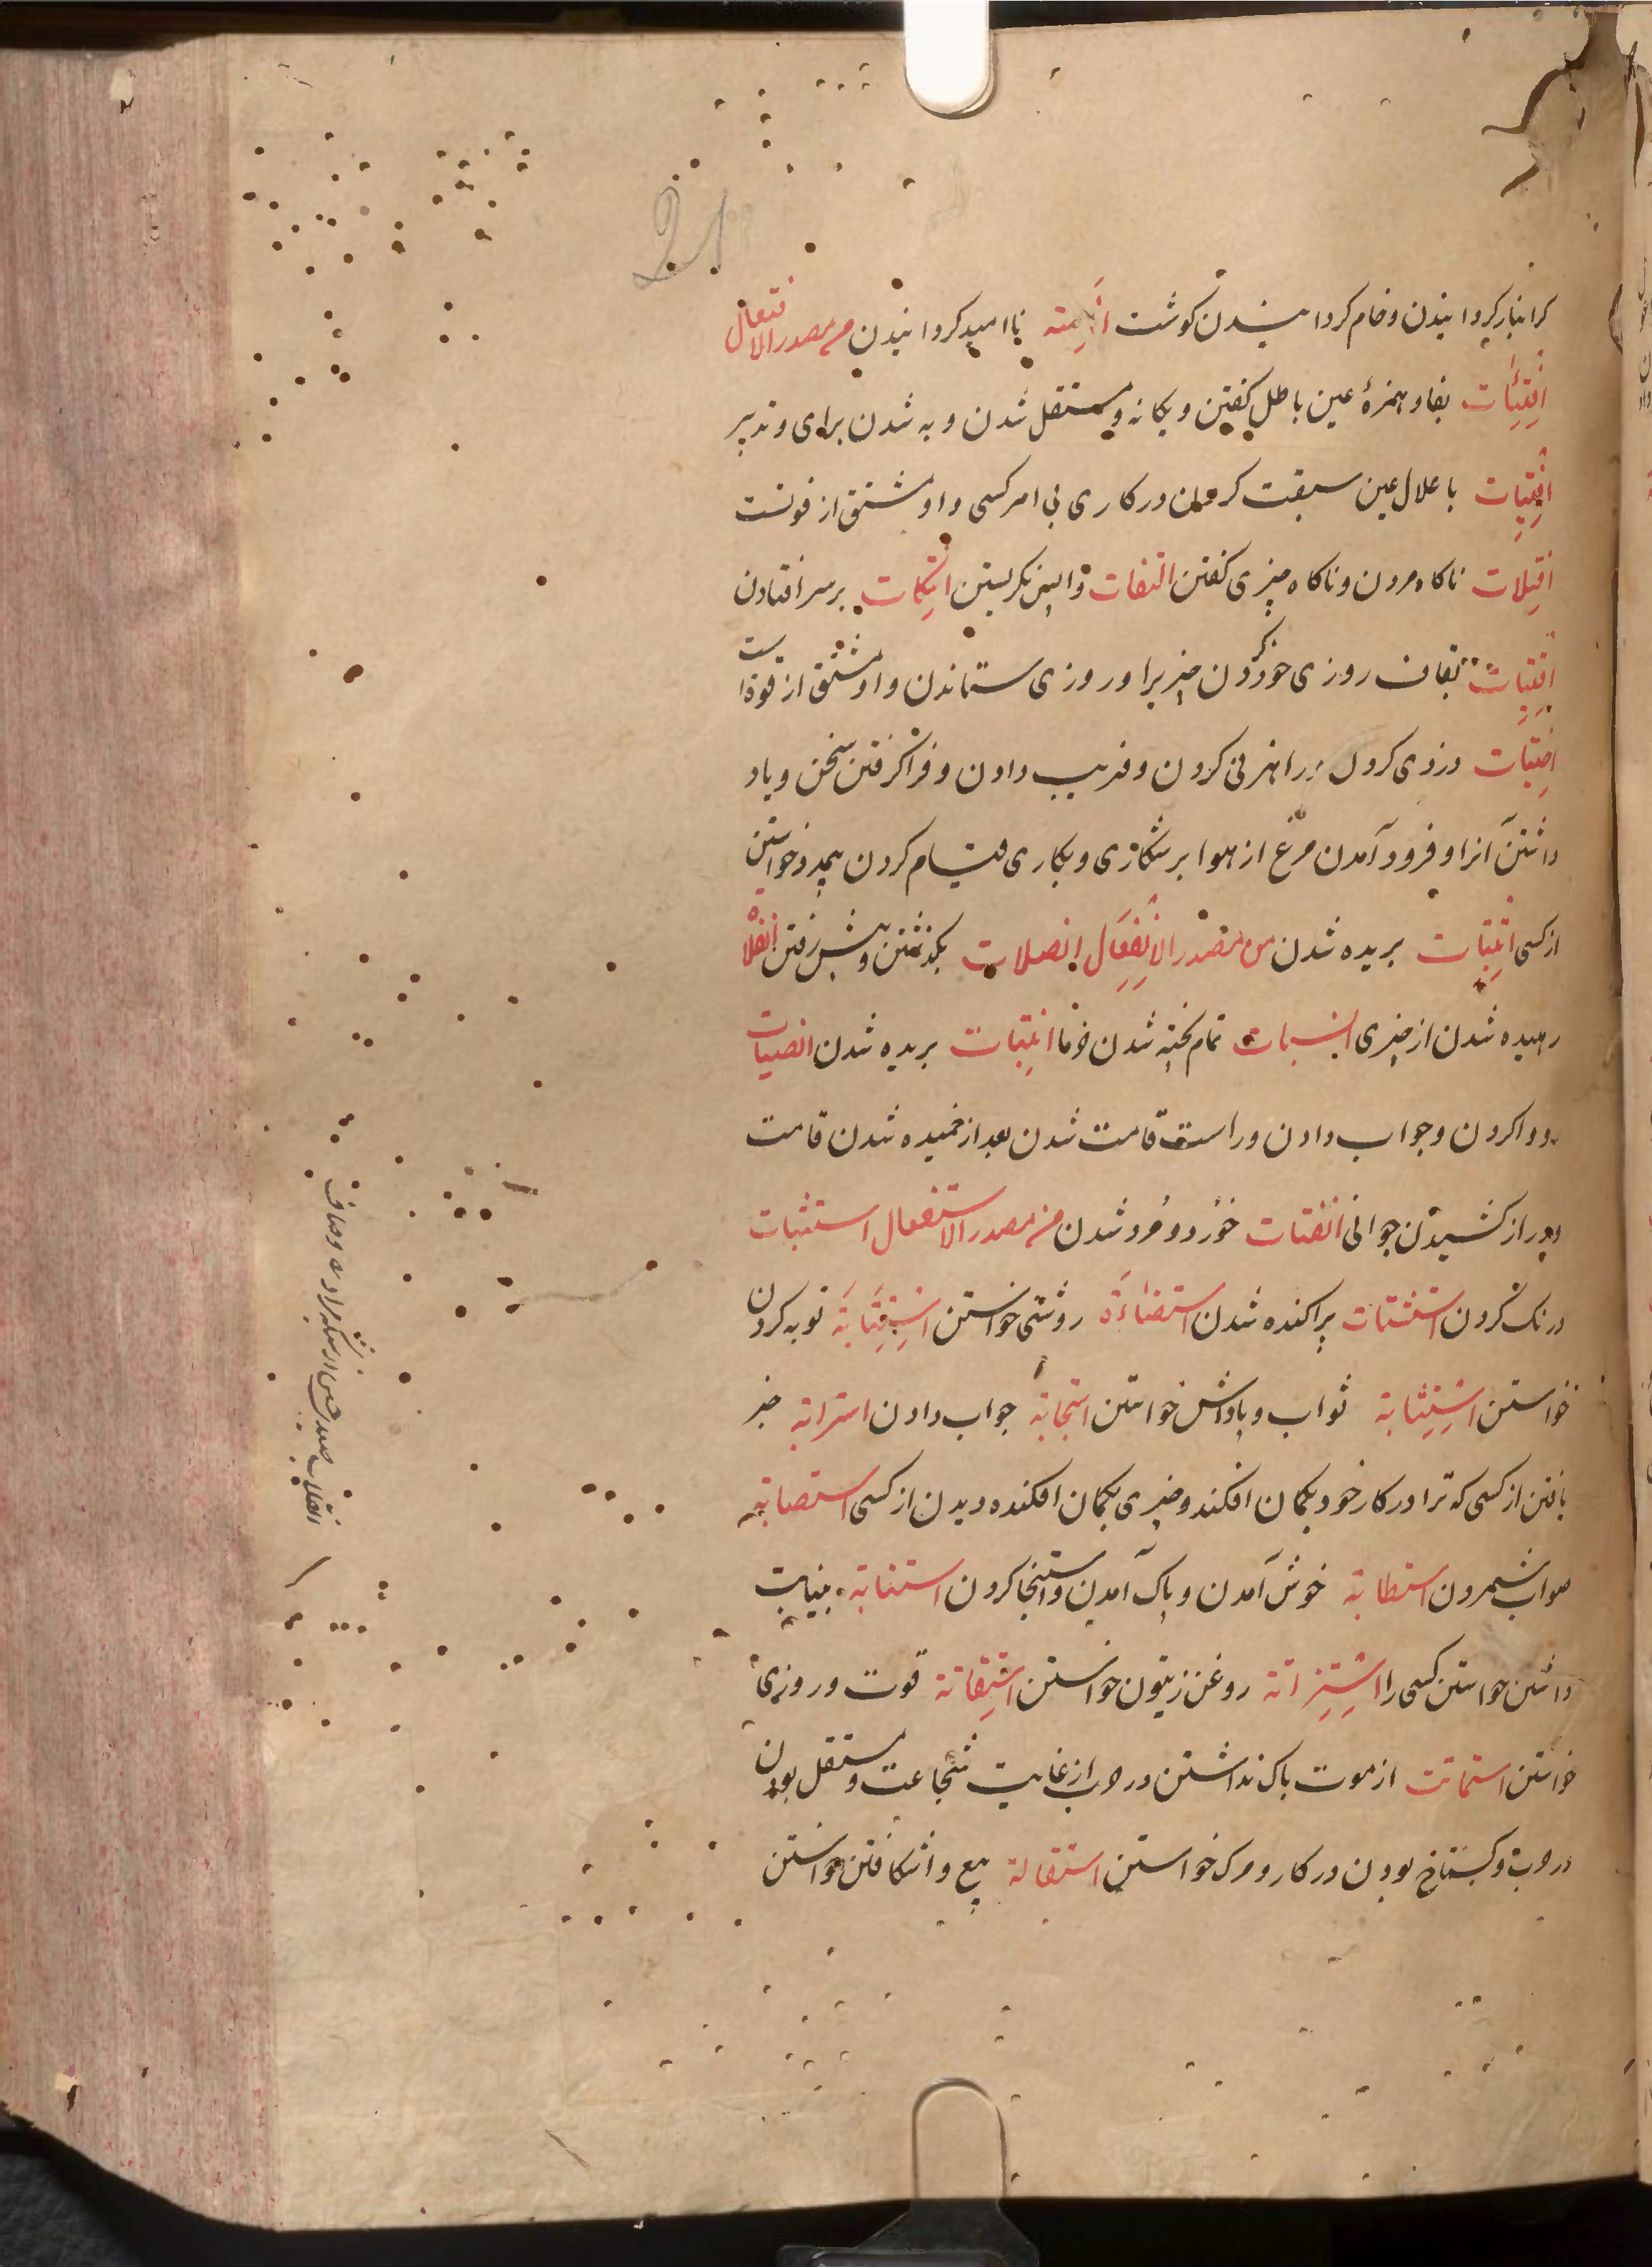 کرانبار کردانیدن و خام کردانیدن کوشت اناءته ناامید کردانیدن من مصدر الافتعال
افتئات بفا و همزۀ عین باطل کفتن و یکانه و مستقل شدن و به شدن برای و تدبیر
افتیات باعلال عین سبقت کردن در کاری بی امر کسی و او مشتق از فوتست
افتلات ناکاه مردن و ناکاه چیزی کفتن التفات واپس نکریستن انتکات بر سر افتادن
اقتیات بقاف روزی خوردن چیزیرا و روزی ستاندن و او مشتق از قوة است
اختیات دزدی کردن و راهزنی کردن و فریب دادن و فرا کرفتن سخن و یاد
داشتن آنرا و فرود آمدن مرغ از هوا بر شکاری و بکاری قیام کردن بیدرخواستن
از کسی انبتات بریده شدن من مصدر الانفعال انصلات بکذشتن و پیش رفتن انفلات
رهیده شدن از چیزی انسبات تمام پخته شدن خرما انبتات بریده شدن انصیات
روا کردن و جواب دادن و راست قامت شدن بعد از خمیده شدن قامت
دیر از کشیدن جوانی انفتات خورد و مرد شدن من مصدر الاستفعال استثبات
درنک کردن استشتات پراکنده شدن استضاءة روشنی خواستن استتابة توبه کردن
خواستن استثابة ثواب و پاداش خواستن استجابة جواب دادن استرابة خبر
یافتن از کسی که ترا در کار خود بکمان افکند و چیزی بکمان افکنده دیدن از کسی استصابة
صواب شمردن استطابة خوش آمدن و پاک آمدن و استنجا کردن استنابة بنیابت
داشتن خواستن کسی را استزاتة روغن زیتون خواستن استقاتة قوت و روزی
خواستن استماتت از موت باک نداشتن در حرب از غایت شجاعت و مستقل بودن
در حرب و کستاخ بودن در کار و مرک خواستن استقالة بیع واشکافتن خواستن